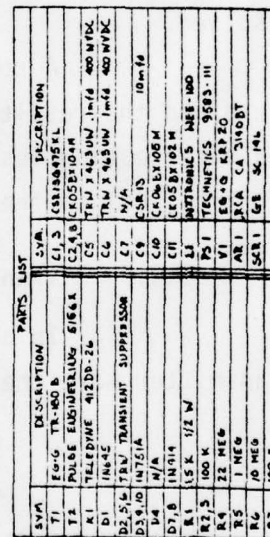 PARTS LIST
SYM DESCRIPTION SYM DESCRIPTION
T1 EG-G TR-180B C1,3 CS13BG475KL
T2 PULSE ENGINEERING C2,4,8 CK05BX104M
K1 TELEDYNE 412DD-26 C5 TRW X463UW .1mfd 400 WVDC
D1 1N645 C6 TRW X463UW 1mfd 400 WVDC
D2,5,6 TRW TRANSIENT SUPPRESSOR C7 N/A
D3,9,10 1N751A C9 CSR13 10mfd
D4 N/A C10 CK06BX105M
D7,8 1N914 C11 CK05BX102M
R1 15K 1/2 W L1 NYTRONICS WEE-100
R2,3 100 K PS1 TECHNETICS 9583-111
R4 22 MEG V1 EG+G KRP20
R5 1 MEG AR1 RCA CA 3140BT
R6 10 MEG SCR1 GE SC 146